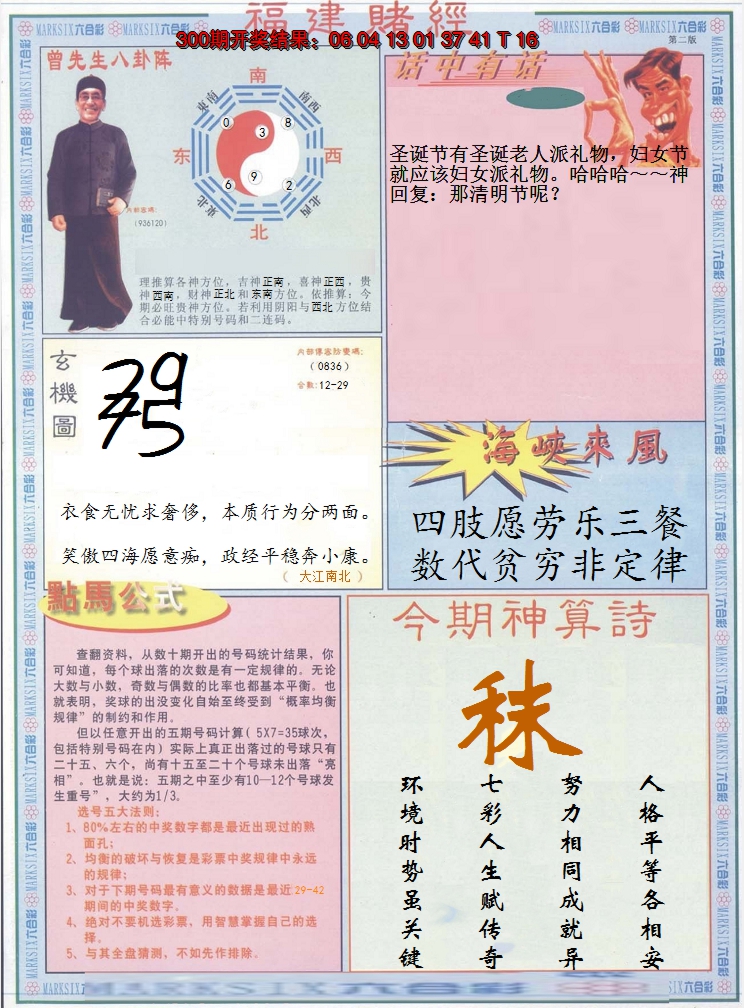 福建賭經
300期开奖结果：06 04 13 01 37 41 T 16
MARKSIX六合彩
第二版
曾先生八卦阵
南
東南
南西
0
8
3
东
西
6
9
2
東北
北西
北
内部密碼：
（936120）
理推算各神方位，吉神正南，喜神正西，贵
神西南，财神正北和东南方位。依推算：今
期必旺贵神方位。若利用阴阳与西北方位结
合必能中特别号码和二连码。
话中有话
圣诞节有圣诞老人派礼物，妇女节
就应该妇女派礼物。哈哈哈～～神
回复：那清明节呢？
玄機圖
内部傳客防僞碼：
（0836）
合数：12-29
衣食无忧求奢侈，本质行为分两面。
笑傲四海愿意痴，政经平稳奔小康。
（ 大江南北 ）
海峽來風
四肢愿劳乐三餐
数代贫穷非定律
點馬公式
查翻资料，从数十期开出的号码统计结果，你
可知道，每个球出落的次数是有一定规律的。无论
大数与小数，奇数与偶数的比率也都基本平衡。也
就表明，奖球的出没变化自始至终受到“概率均衡
规律”的制约和作用。
但以任意开出的五期号码计算（5X7=35球次，
包括特别号码在内）实际上真正出落过的号球只有
二十五、六个，尚有十五至二十个号球未出落“亮
相”。也就是说：五期之中至少有10—12个号球发
生重号”，大约为1/3。
选号五大法则：
1、80%左右的中奖数字都是最近出现过的熟
面孔；
2、均衡的破坏与恢复是彩票中奖规律中永远
的规律；
3、对于下期号码最有意义的数据是最近29-42
期间的中奖数字。
4、绝对不要机选彩票，用智慧掌握自己的选
择。
5、与其全盘猜测，不如先作排除。
今期神算詩
秣
人格平等各相安
努力相同成就异
七彩人生赋传奇
环境时势虽关键